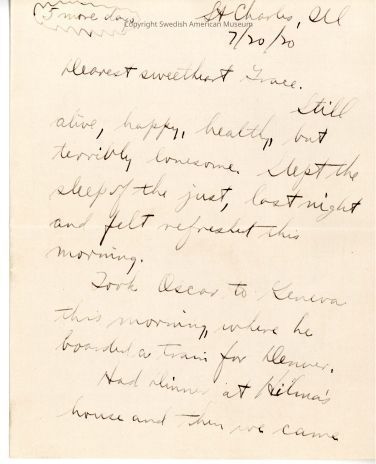 5 more days
Copyright Swedish American Museum
St Charles, Ill
7/20/20
Dearest sweetheart Grace.
Still
alive, happy, healthy, but
terribly lonesome. Slept the
sleep of the just, last night
and felt refreshet this
morning.
Took Oscar to Geneva
this morning, where he
boarded a train for Denver.
Had dinner at Hilma's
house and then we came